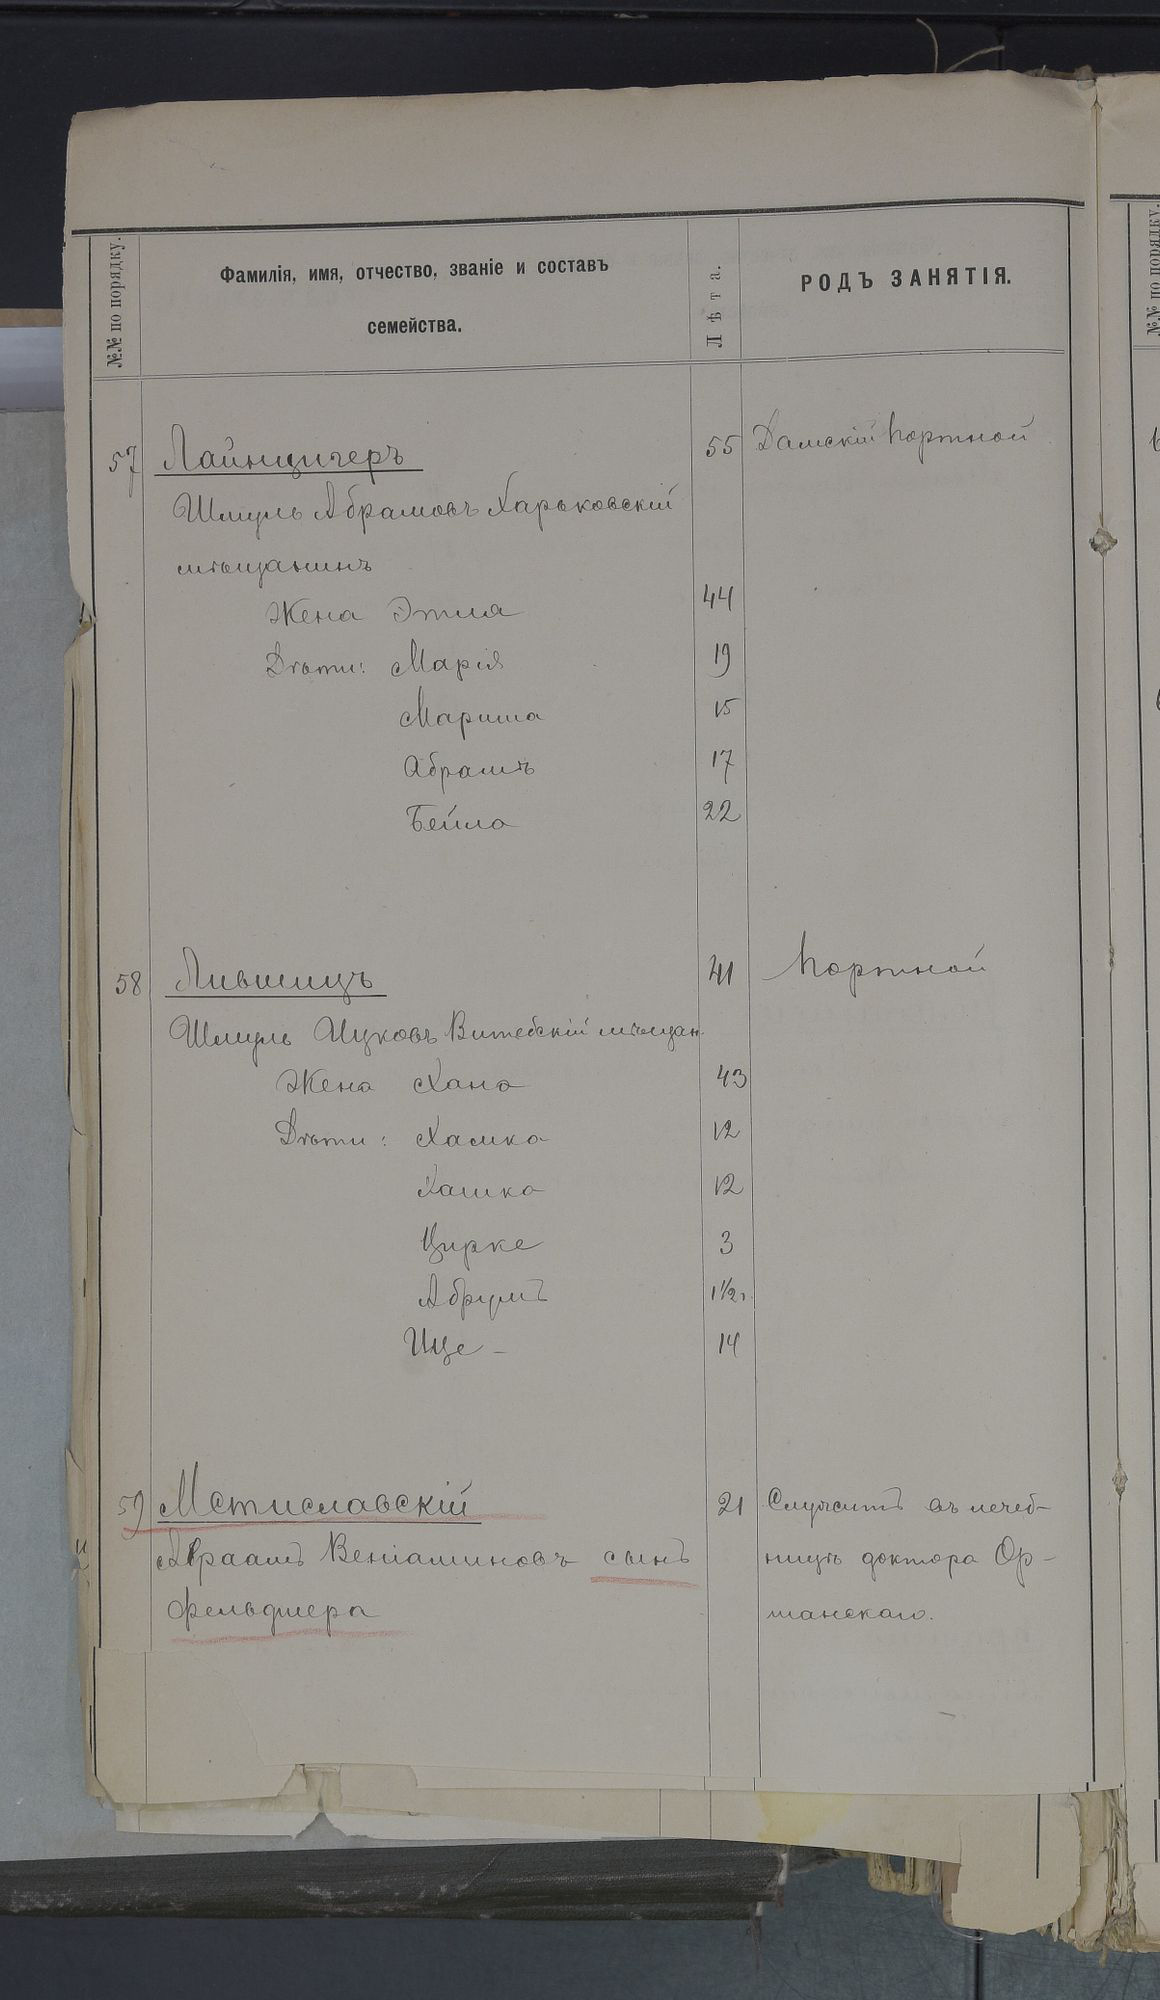 №№ по порядку.
Фамилія, имя, отчество, званіе и составъ
семейства.
Лѣта.
РОДЪ ЗАНЯТІЯ.
57 Лайнцигеръ 55 Дамскій портной
Шмуль Абрамовъ Харьковскій
мѣщанинъ
Жена Этля 44
Дѣти: Марія 19
Мариша 15
Абрамъ 17
Бейла 22
58 Лившицъ 41 Портной
Шмуль Ицковъ Витебскій мѣщан.
Жена Хана 43
Дѣти: Хасика 12
Хашка 12
Цирке 3
Абрумъ 1½ г.
Ице - 14
59 Мстиславскій 21 Служитъ въ лечеб-
Авраамъ Веніаминовъ сынъ ницѣ доктора Ор-
фельдшера шанскаго.
№№ по порядку.